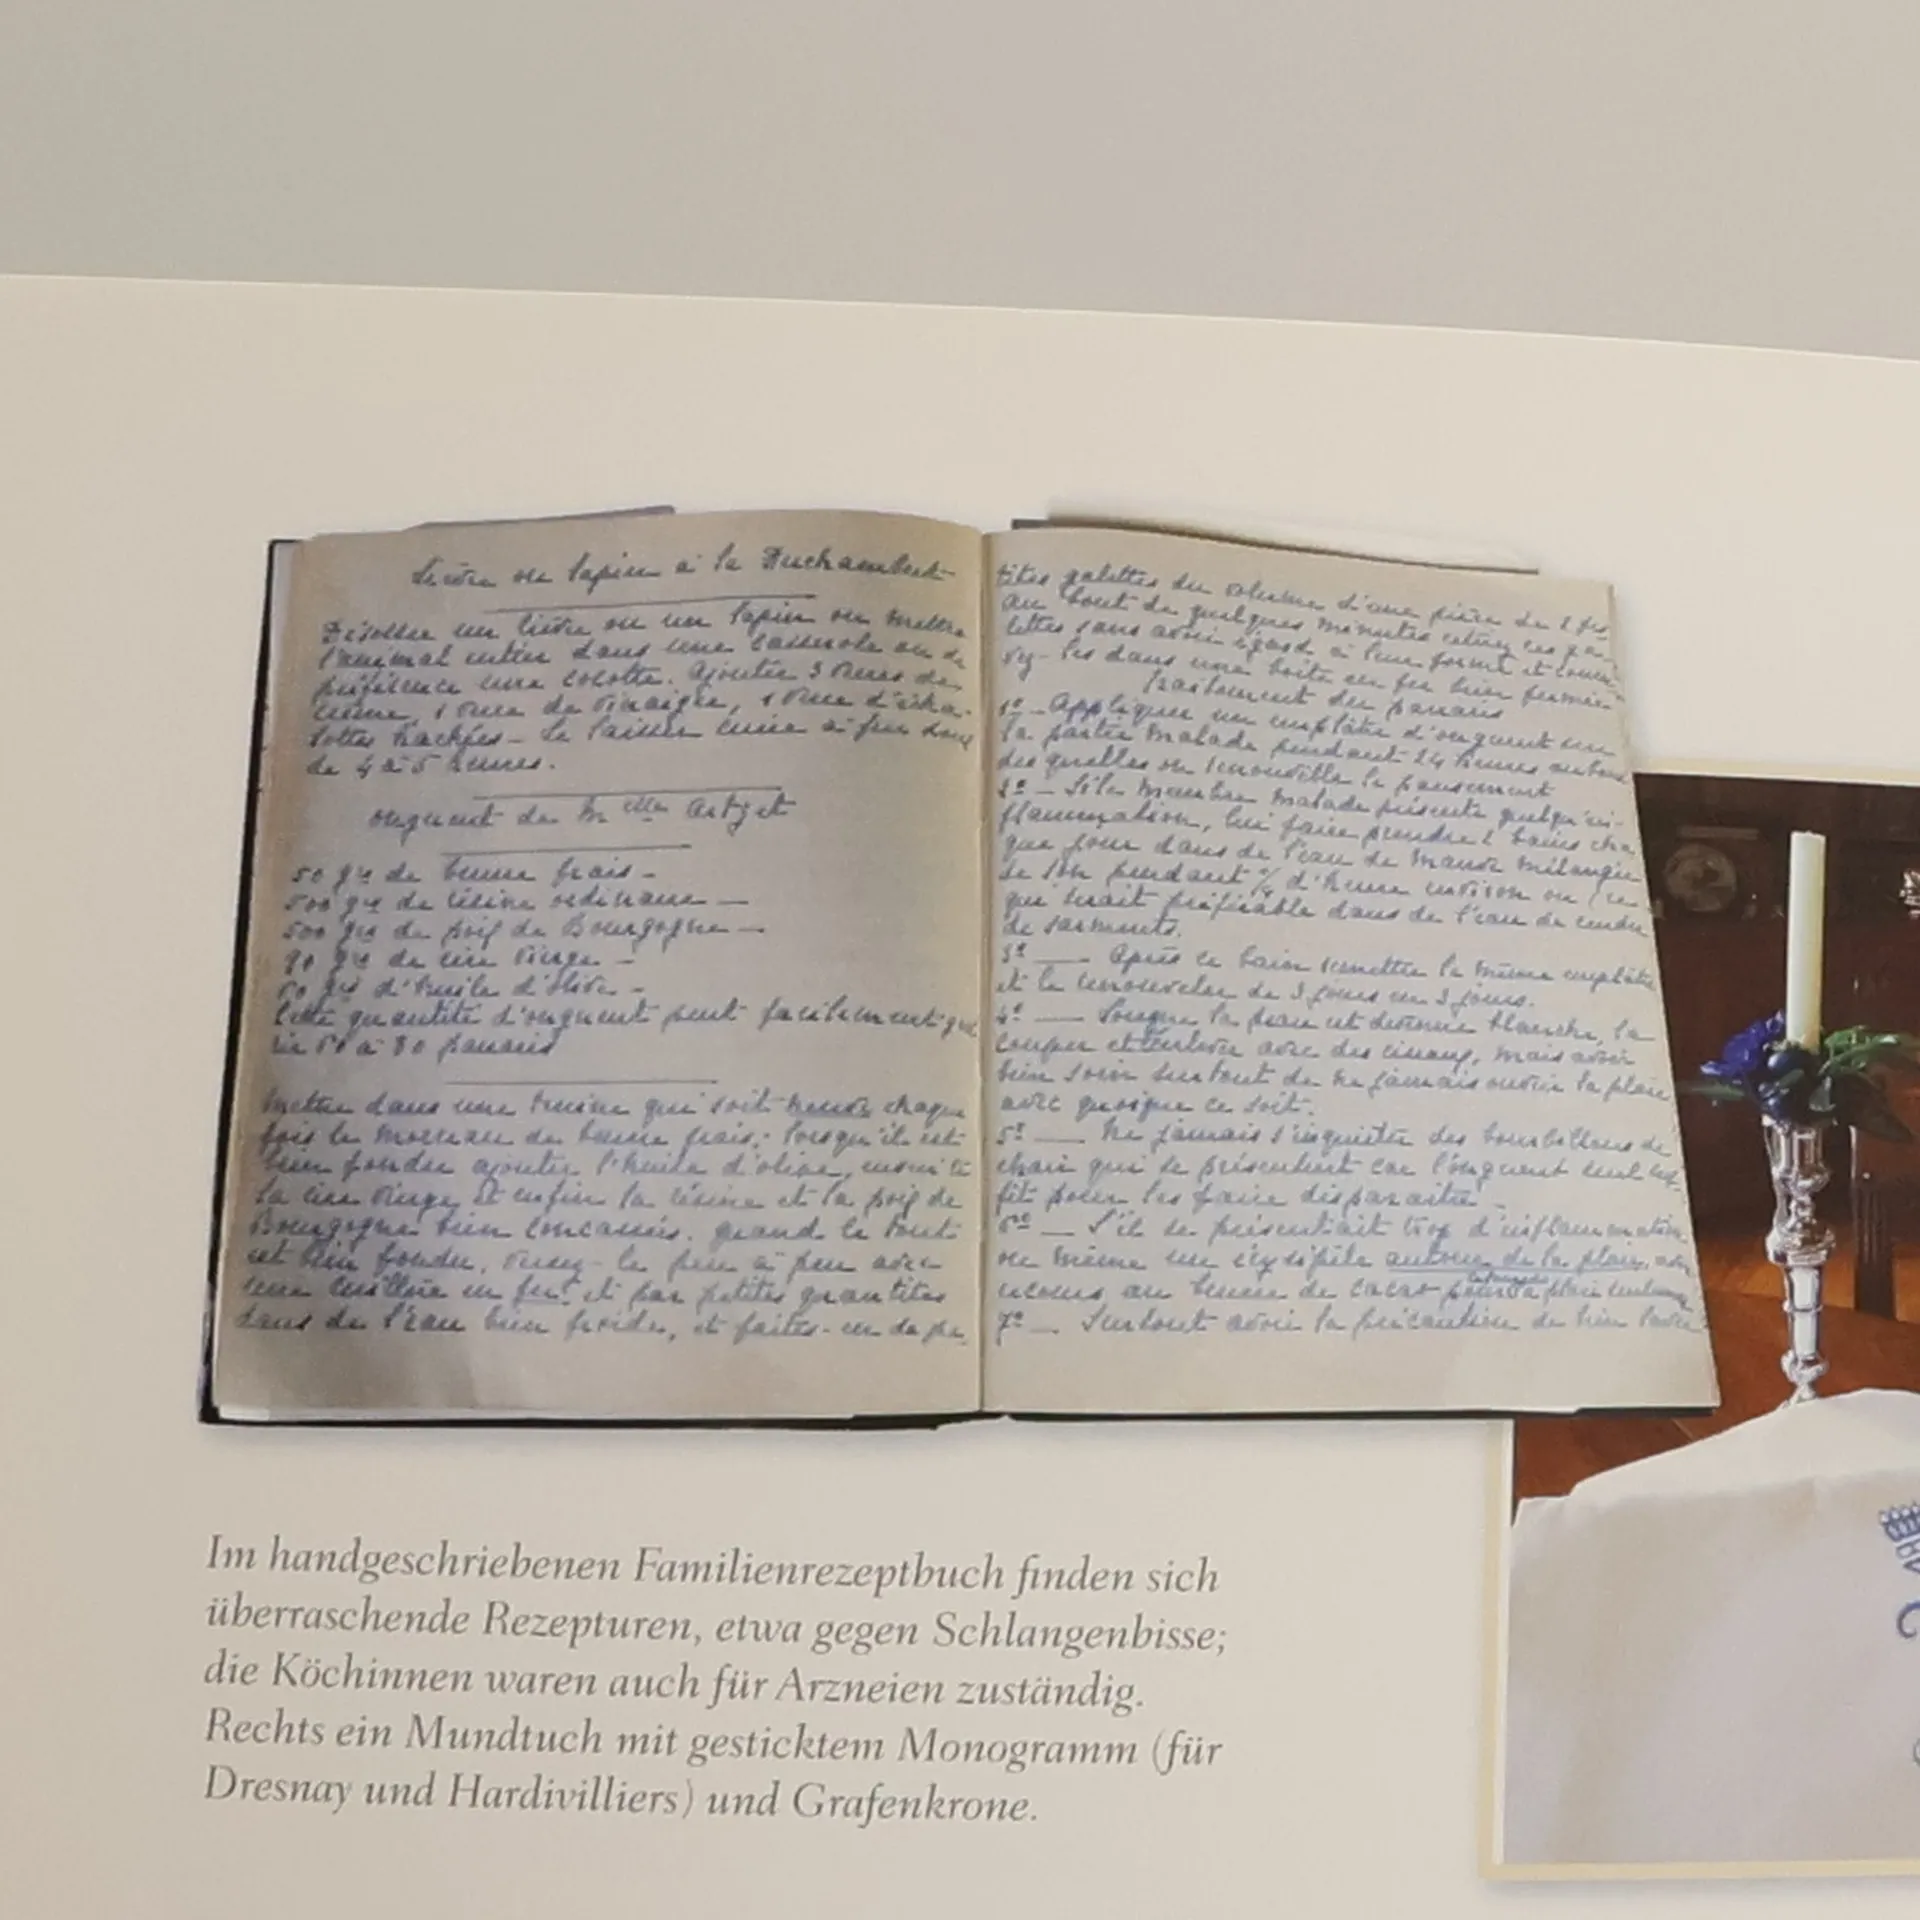 Lièvre ou lapin à la Duchambert
Dépouiller un lièvre ou un lapin ou mettre
l'animal entier dans une casserole ou de
préférence une cocotte. Ajouter 3 verres de
crème, 1 verre de vinaigre, 1 verre d'écha-
lottes hachées - Le laisser cuire à feu doux
de 4 à 5 heures.
onguent de Melle
50 grs de beurre frais -
500 grs de résine ordinaire -
500 grs de poix de Bourgogne -
90 grs de cire vierge -
grs d'huile d'olive -
Cette quantité d'onguent peut facilement gué
rir à 80 panaris
Mettre dans une qui soit neuve chaque
fois le morceau de beurre frais; lorsqu'il est
bien fondu ajouter l'huile d'olive, ensuite
la cire vierge et enfin la résine et la poix de
Bourgogne bien concassés. quand le tout
est bien fondu, versez-le peu à peu avec
une cuillère en fer et par petites quantités
dans de l'eau bien froide, et faites-en de pe
tites galettes du volume d'une pièce de 2 frs
au bout de quelques minutes retirez ces ga-
lettes sans avoir égard à leur forme et conser-
vez-les dans une boîte en fer bien fermée.
Traitement du panaris
1º - Appliquer un emplâtre d'onguent sur
la partie malade pendant 24 heures au bout
des quelles on renouvelle le pansement
2º - Si le membre malade présente quelqu'in-
flammation, lui faire prendre 2 bains cha
que jour dans de l'eau de mauve mélangée
de son pendant 1/4 d'heure environ ou (ce
qui serait préférable dans de l'eau de cendre
de sarments.
3º - Après ce bain remettre le même emplâtre
et le renouveler de 3 jours en 3 jours.
4º - Lorsque la peau est devenue blanche, la
couper et l'enlever avec des ciseaux, mais avoir
bien soin surtout de ne jamais ouvrir la plaie
avec quoique ce soit.
5º - Ne jamais s'inquiéter des bourbillons de
chair qui se présentent car l'onguent seul suf-
fit pour les faire disparaitre -
6º - S'il se présentait trop d'inflammation
ou même un érysipèle autour de la plaie, avoir
recours au beurre de cacao la plaie
7º - Surtout avoir la précaution de bien laver
Im handgeschriebenen Familienrezeptbuch finden sich
überraschende Rezepturen, etwa gegen Schlangenbisse;
die Köchinnen waren auch für Arzneien zuständig.
Rechts ein Mundtuch mit gesticktem Monogramm (für
Dresnay und Hardivilliers) und Grafenkrone.